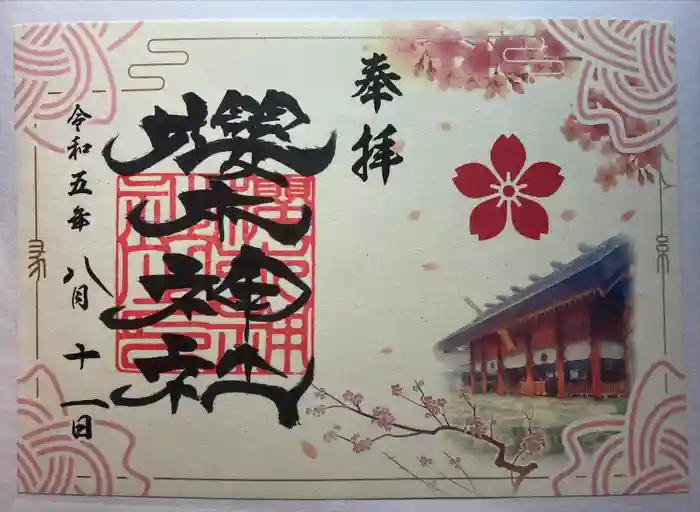 奉拝
櫻木神社
令和五年八月十一日